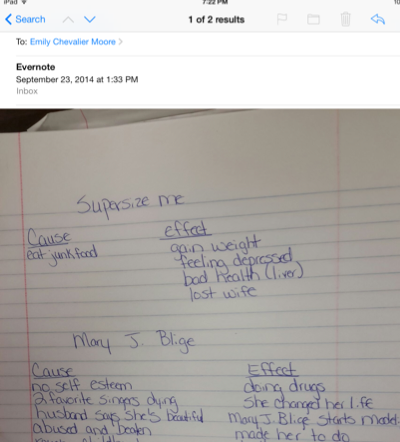 iPad
7:22 PM
Search
1 of 2 results
To: Emily Chevalier Moore
Evernote
September 23, 2014 at 1:33 PM
Inbox
Supersize me
Cause effect
eat junk food gain weight
feeling depressed
bad health (liver)
lost wife
Mary J. Blige
Cause Effect
no self esteem doing drugs
2 favorite singers dying She changed her life
husband says She's beautiful Mary J. Blige Starts
abused and beaten made her to do